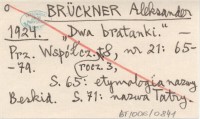 BRÜCKNER Aleksander
1924. „Dwa bratanki." –
Prz. Współcz., nr 21: 65-
-79. rocz. 3,
S. 65: etymologia nazwy
Beskid. S. 71: nazwa Tatry.
BT1006/0841